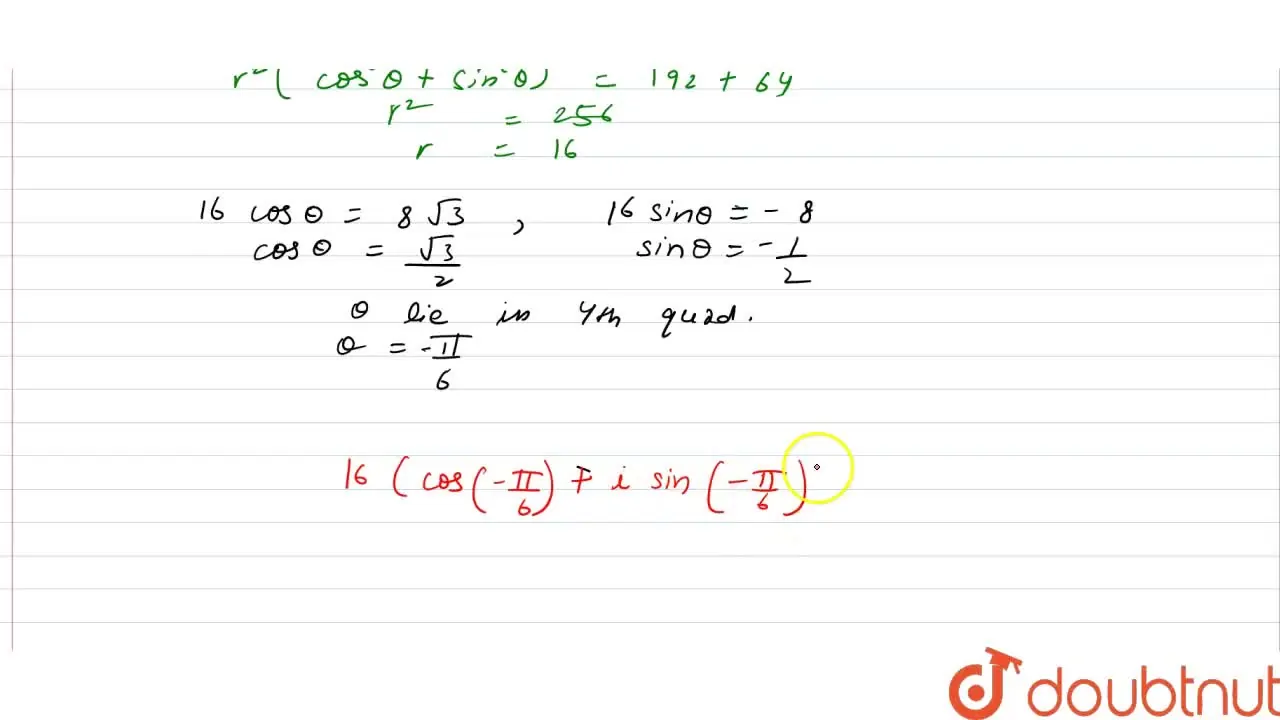 r²( cos²θ + sin²θ) = 192 + 64
r² = 256
r = 16
16 cosθ = 8√3 , 16 sinθ = - 8
cosθ = √3/2 sinθ = -1/2
θ lie in 4th quad.
θ = -π/6
16 ( cos(-π/6) + i sin(-π/6)
doubtnut